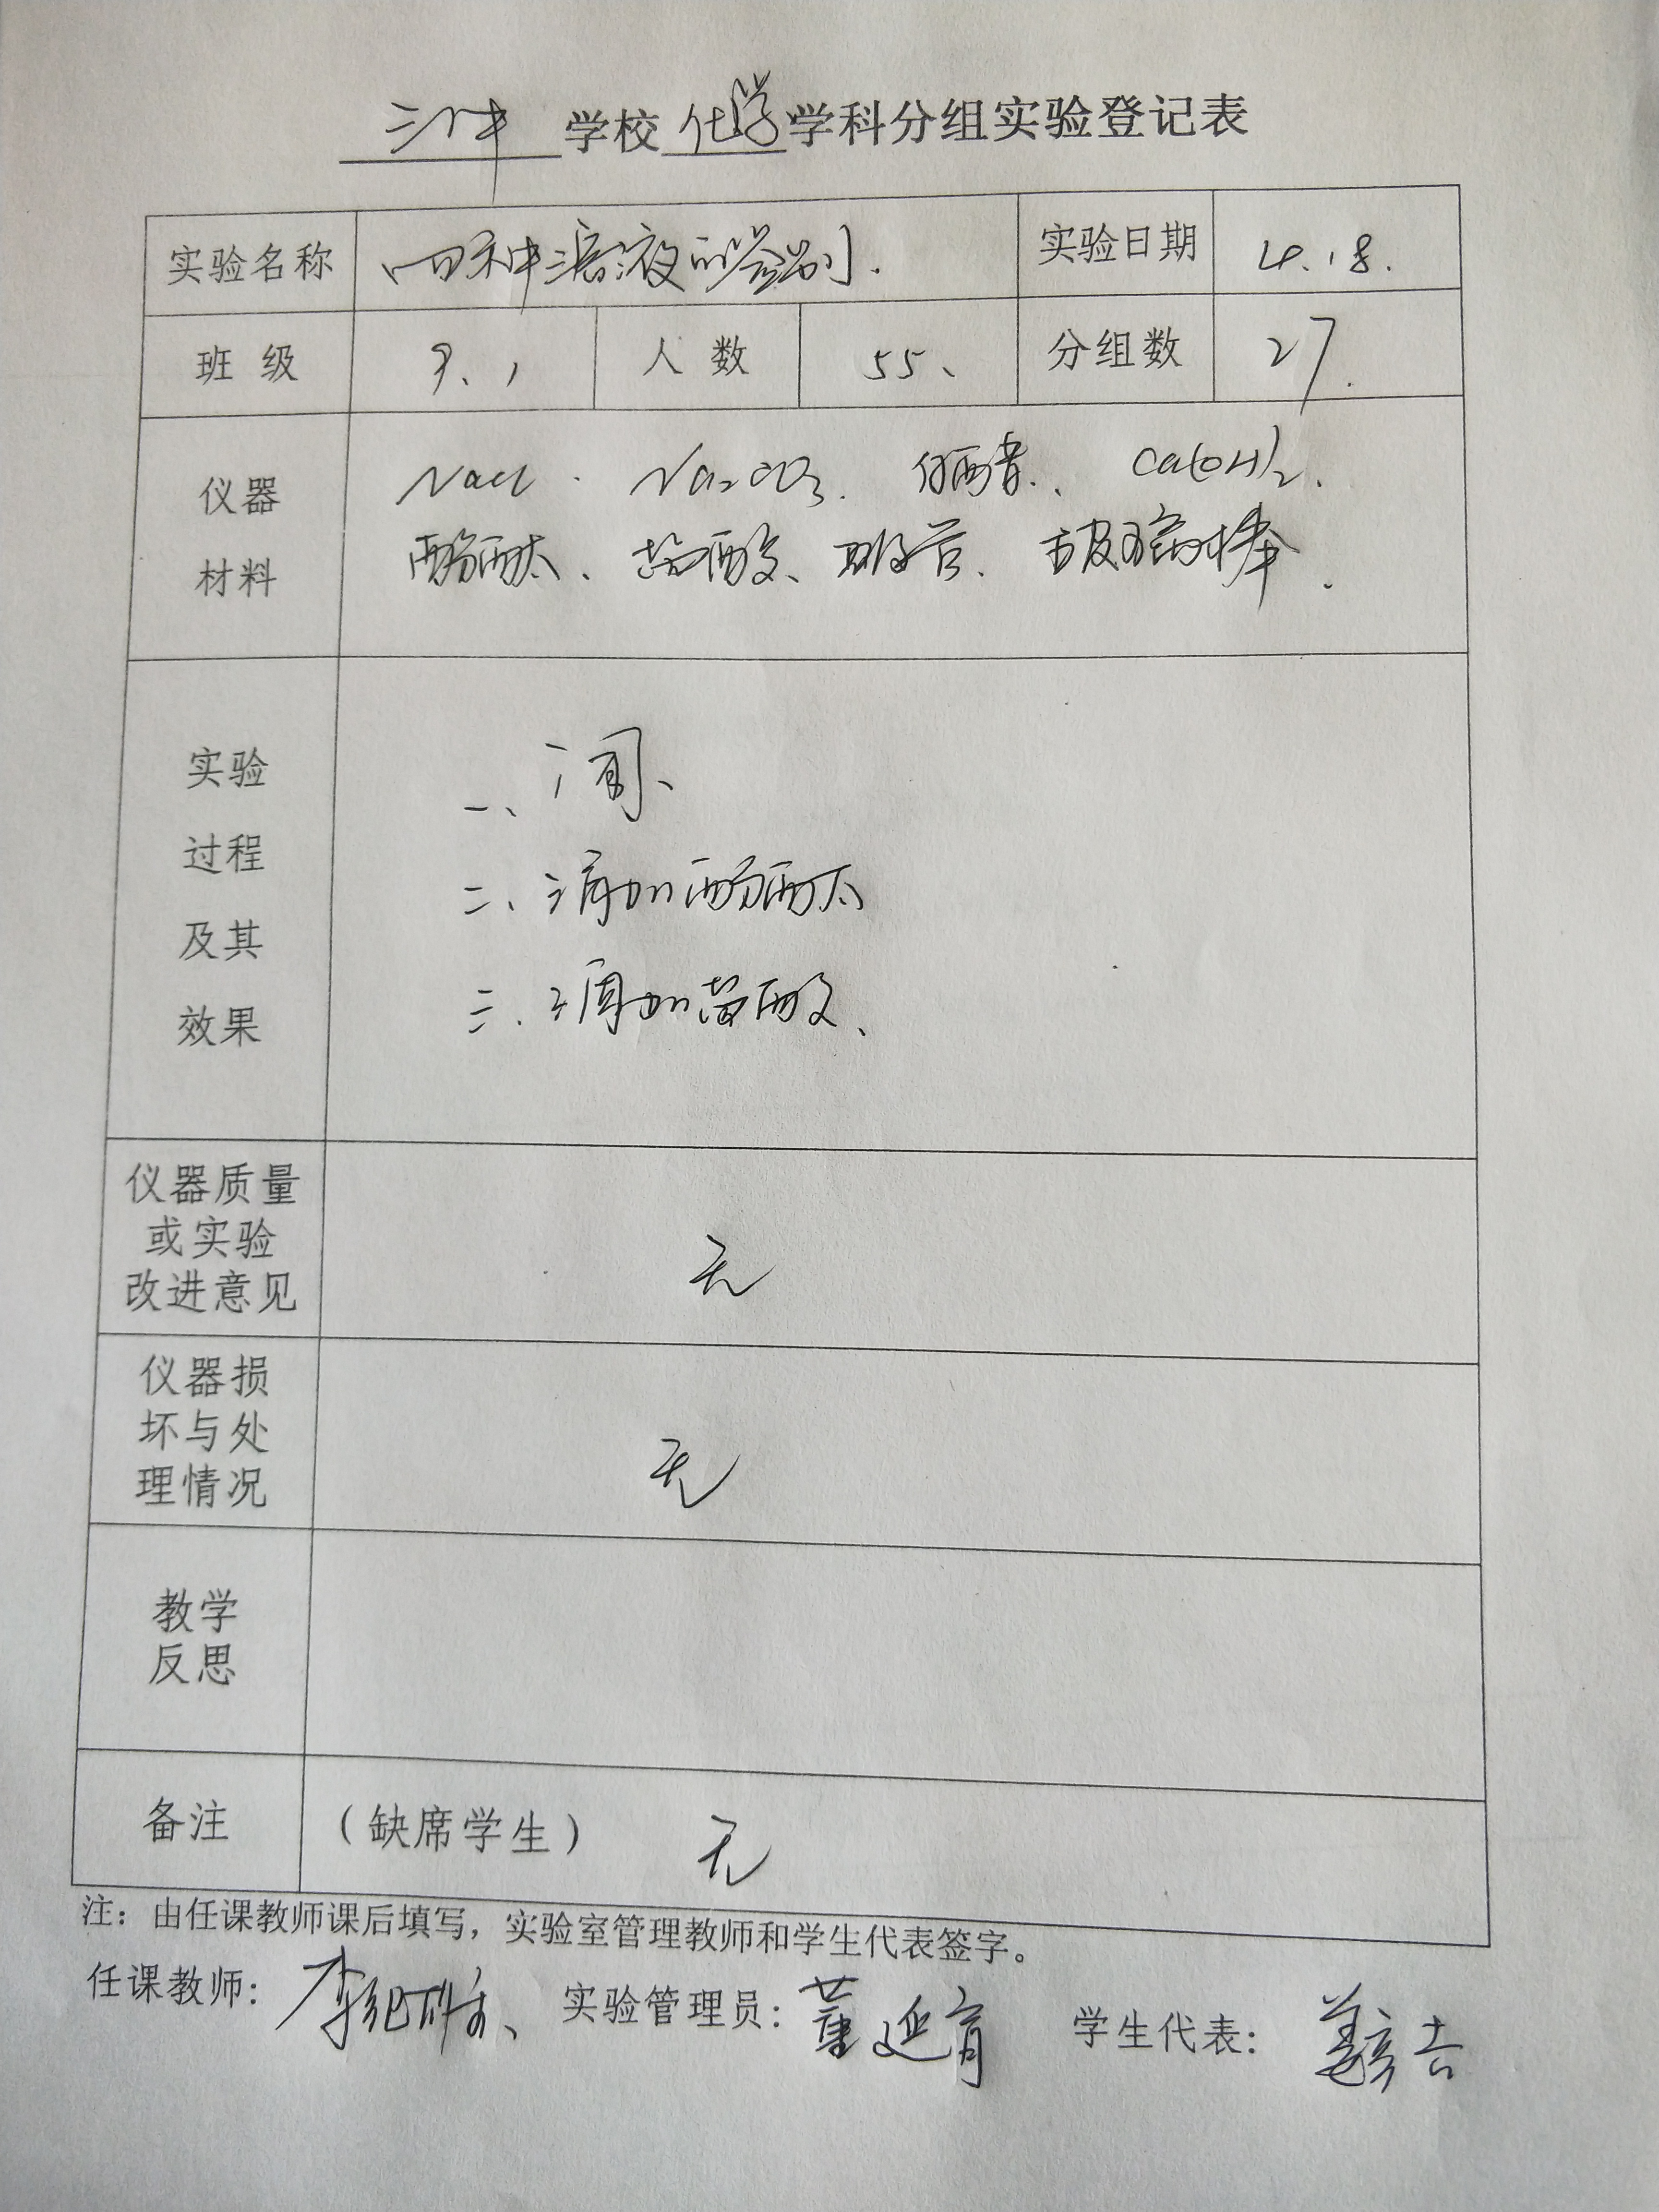 学校化学学科分组实验登记表
实验名称 四种溶液的鉴别. 实验日期 4.18.
班 级 9、1 人 数 55、 分组数 27.
仪器 NaCl . Na₂CO₃. 白醋.、 Ca(OH)₂.
材料 酚酞、盐酸、 玻璃棒.
实验 一、闻、
过程 二、滴加酚酞
及其 三.滴加盐酸、
效果
仪器质量
或实验 无
改进意见
仪器损
坏与处 无
理情况
教学
反思
备注 (缺席学生) 无
注：由任课教师课后填写，实验室管理教师和学生代表签字。
任课教师: 实验管理员: 董延育 学生代表: